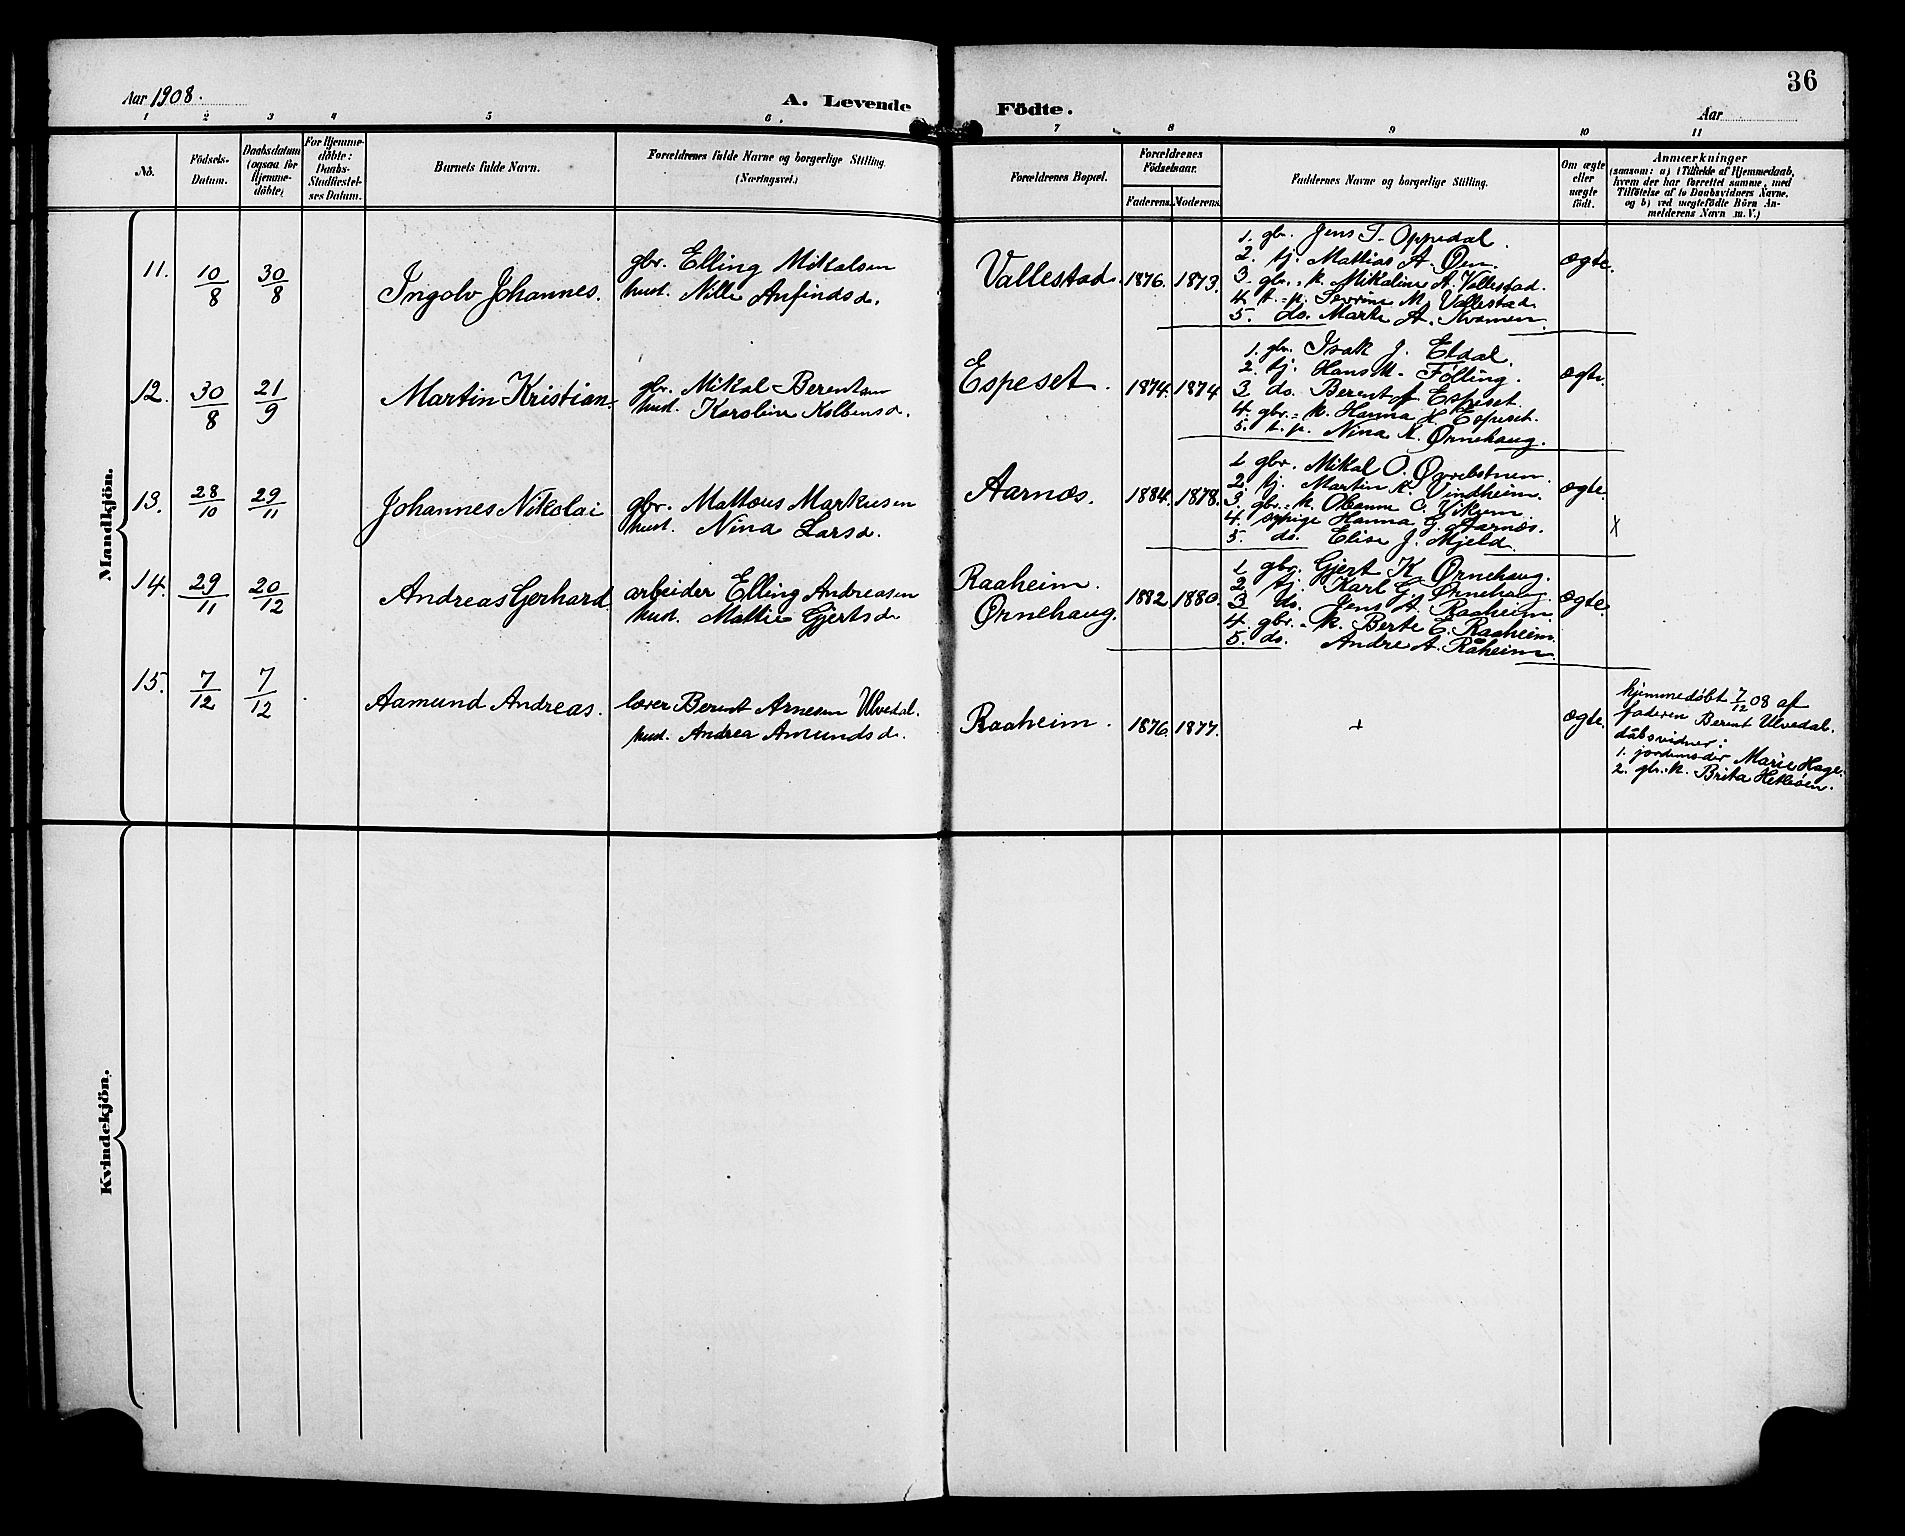 36
Aar 1908.
A. Levende Födte.
Aar
1 2 3 4 5 6 7 8 9 10 11
No.
Födsels-Datum.
Daabsdatum (ogsaa for Hjemme-döbte)
For Hjemme-döbte: Daabs-Stadfæstel-ses Datum.
Barnets fulde Navn.
Forældrenes fulde Navne og borgerlige Stilling.
(Næringsvei.)
Forældrenes Bopæl.
Forældrenes Födselsaar.
Faderens. Moderens.
Faddernes Navne og borgerlige Stilling.
Om ægte eller uægte födt.
Anmærkninger
(saasom: a) i Tilfælde af Hjemmedaab,
hvem der har forrettet samme, med
Tilföielse af to Daabsvidners Navne,
og b) ved uægtefödte Börn An-
melderens Navn m. V.)
Mandkjön.
11. 10/8 30/8 Ingolv Johannes.
gbr. Elling Mikalsen
hust. Nille Anfindsd.
Vallestad 1876. 1873.
1. gbr. Jens T. Oppedal.
2. tj. Mathias A. Øen.
3. gbr.-k. Mikaline A. Vallestad.
4. t.-p. Severine M. Vallestad
5. do. Marte A. Kvamen.
ægte.
12. 30/8 21/9 Martin Kristian.
gbr. Mikal Berentsen
hust. Karoline Kolbensd.
Espeset. 1874. 1874
1. gbr. Isak J. Eldal.
2. tj. Hans M. Følling.
3 do. Berent A Espeset.
4. gbr.-k. Hanna H. Espeset.
5. t.p. Nina K. Ørnehaug.
ægte.
13. 28/10 29/11 Johannes Nikolai
gbr. Mathæus Markusen
hust. Nina Larsd.
Aarnæs. 1884. 1878.
1 gbr. Mikal O. Øvrebotnen.
2. tj. Martin K. Vindheim.
3. gbr.-k. O. Vikum.
4. Hanna G. Aarnæs.
5. do. Elise J. Mjeld.
ægte.
x
14. 29/11 20/12 Andreas Gerhard
arbeider Elling Andreasen
hust. Mathie Gjertsd
Raaheim.
Ørnehaug. 1882 1880.
1 gbr. Gjert K. Ørnehaug.
2 tj. Karl G. Ørnehaug.
3 do. Jens A. Raaheim.
4. gbr.-k. Berte E. Raaheim.
5. do. Andre A. Råheim.
ægte.
15. 7/12 7/12 Aamund Andreas.
lærer Berent Arnesen Ulvedal.
hust. Andrea Amundsd.
Raaheim. 1876. 1877.
+
ægte.
hjemmedøbt 7/12 08 af
faderen Berent Ulvedal.
dåbsvidner:
1. jordmoder Marie Hage.
2. gbr.k. Brita Hetleøen.
Kvindekjön.